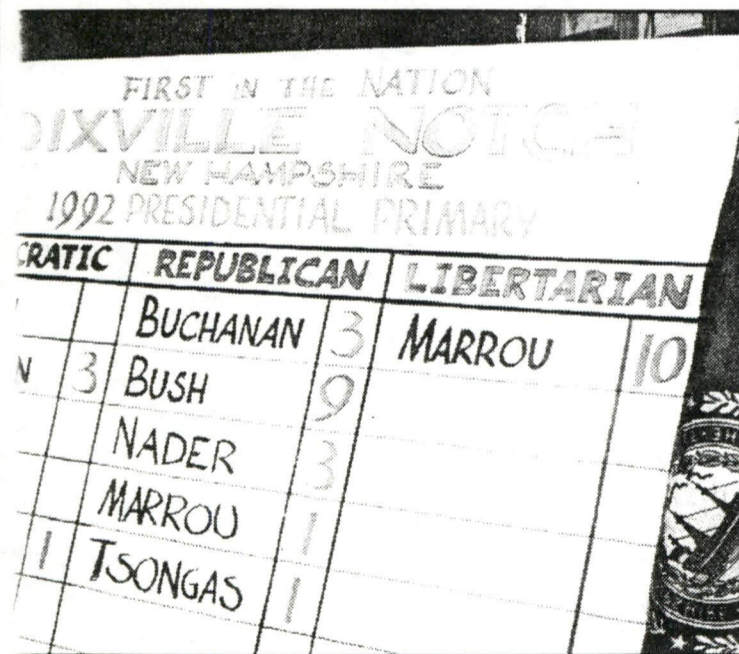 FIRST IN THE NATION
DIXVILLE NOTCH
NEW HAMPSHIRE
1992 PRESIDENTIAL PRIMARY
CRATIC REPUBLICAN LIBERTARIAN
BUCHANAN 3 MARROU 10
N 3 BUSH 9
NADER 3
MARROU 1
1 TSONGAS 1